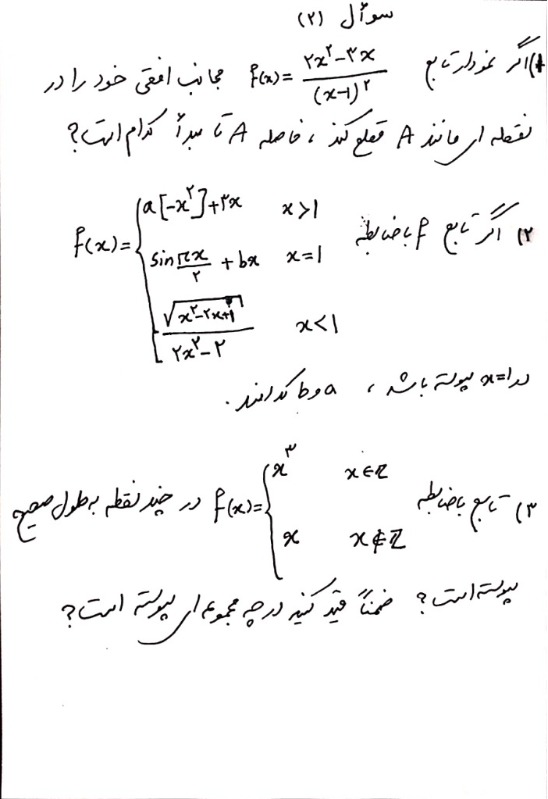 سوال (۲)
۱) اگر نمودار تابع f(x) = (۲x^۲ - ۳x) / (x-1)^۲ مجانب افقی خود را در
نقطه ای مانند A قطع کند ، فاصله A تا مبدأ کدام است؟
۲) اگر تابع f باضابطه f(x) = { a[-x^۲] + ۳x   x > 1
sin πx/۲ + bx   x = 1
√(x^۲ - ۲x + 1) / (۲x^۲ - ۲)   x < 1
در x=1 پیوسته باشد ، a و b کدامند .
۳) تابع باضابطه f(x) = { x^۳   x ∈ Z
x   x ∉ Z
در چند نقطه به طول صحیح
پیوسته است؟ ضمناً قید کنید در چه مجموعه ای پیوسته است؟